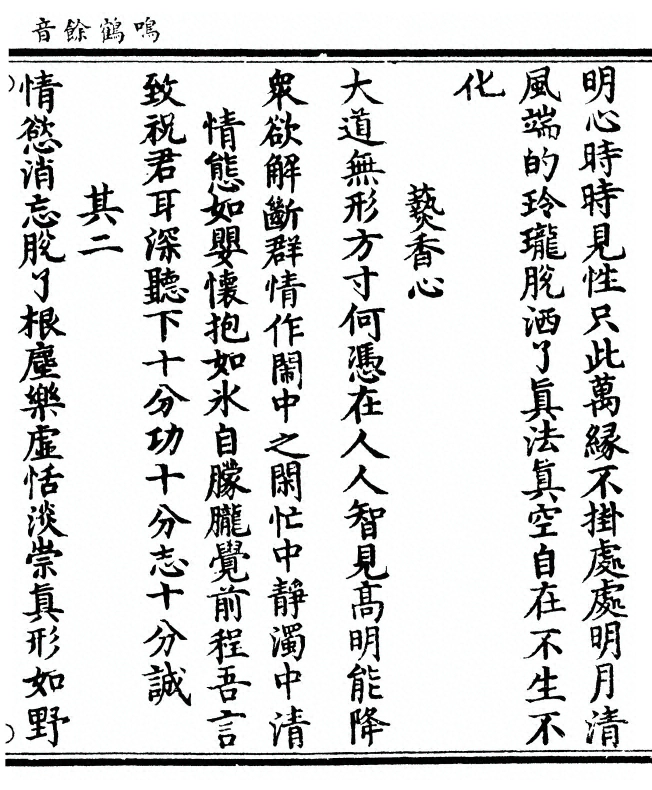 鳴鶴餘音
明心時時見性只此萬緣不掛處處明月清
風端的玲瓏脫洒了眞法眞空自在不生不
化
爇香心
大道無形方寸何憑在人人智見高明能降
衆欲解斷群情作鬧中之閑忙中靜濁中清
情態如嬰懷抱如氷自朦朧覺前程吾言
致祝君耳深聽下十分功十分志十分誠
其二
情慾消忘脫了根塵樂虛恬淡崇眞形如野